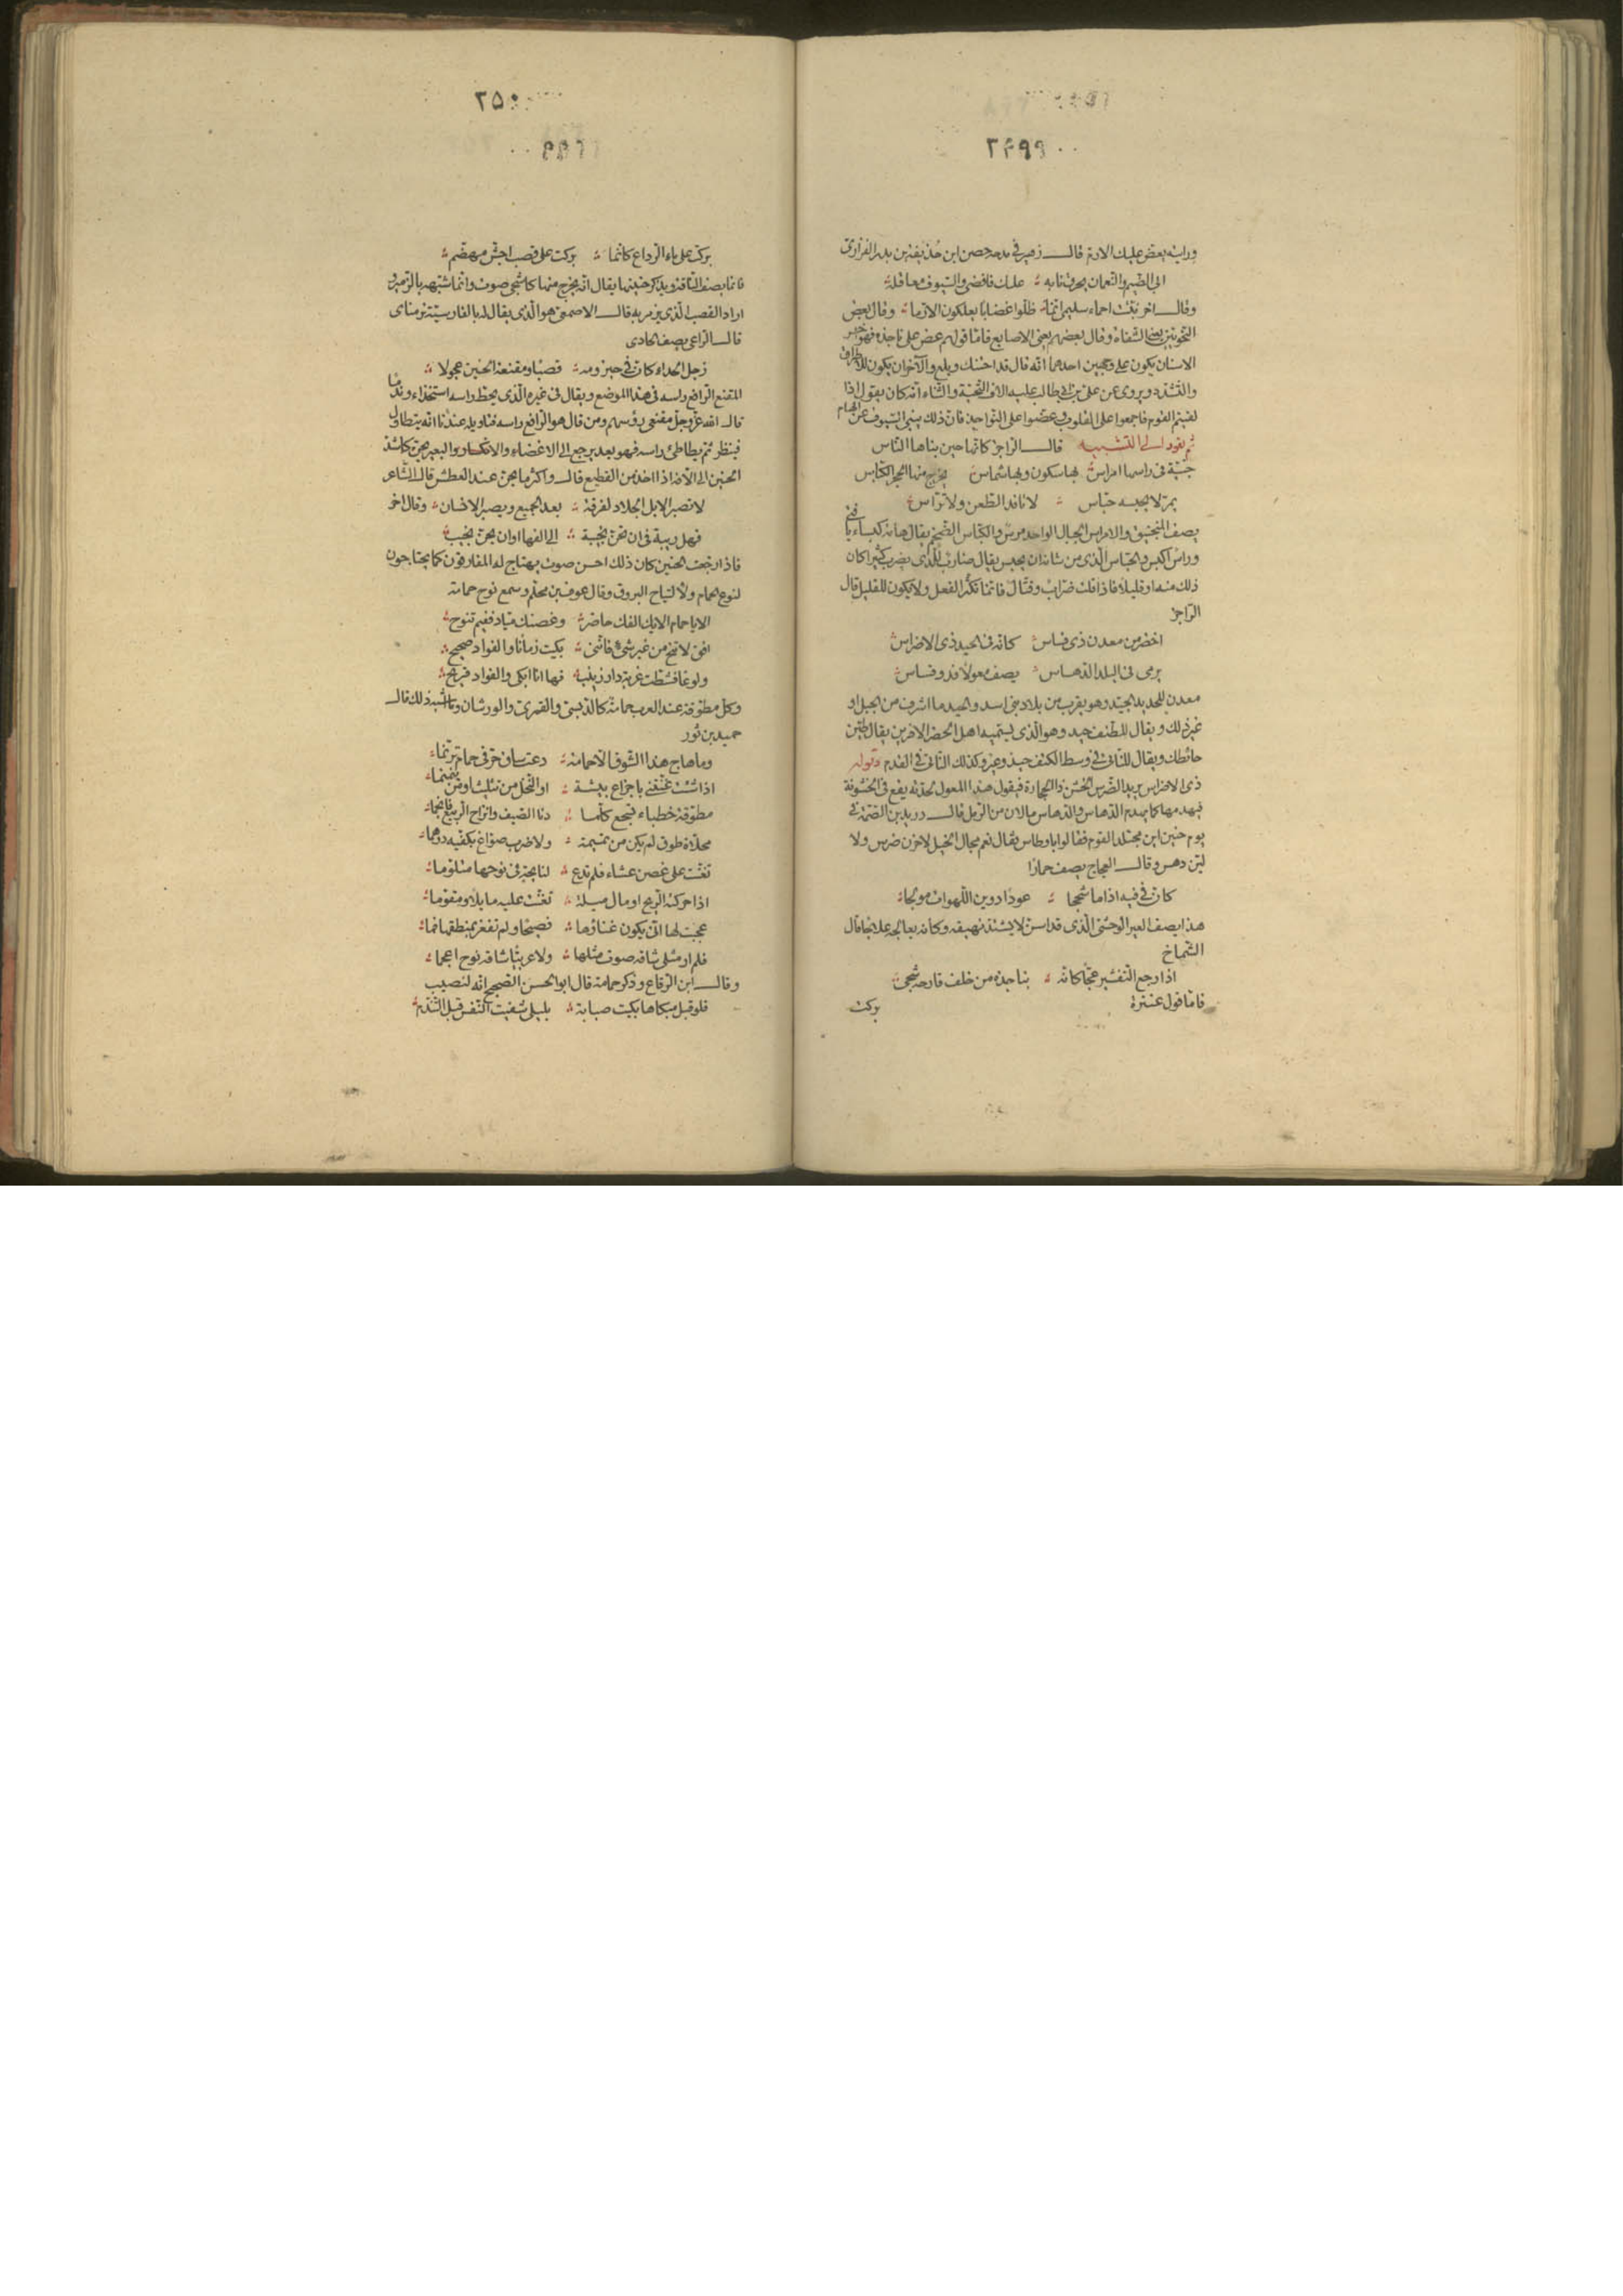 ۲۴۹۹
ورايته يعض عليك الارم قالــ زهير فى مدحه حصن ابن حذيفة بن بدر الفزارى
ابى الضيم والنعمان يحرق نابه عليك فافضى والسيوف معاقله
وقالــ اخر نبئت احماء سليمى انما ظلوا غضابا يعلكون الارما وقال بعض
النحويين يعنى الشفاه وقال بعضهم يعنى الاصابع فاما قولهم عض على ناجذه فهو اخر
الاسنان يكون على وجهين احدهما انه قال قد احتنك وبلغ والآخر ان يكون للاطراق
والتشدد ويروى عن على بن ابى طالب عليه الاف التحية والثناء انه كان يقول اذا
لقيتم القوم فاجمعوا على القلوب وعضوا على النواجذ فان ذلك ينبى السيوف عن الهام
ثم نعود الى التشبيه قالــ الراجز كانها حين بناها الناس
جنية فى راسها امراس لها سكون ولها شماس يخرج منها الحجر الكباس
يمر لا يحبسه حباس لا نافذ الطعن ولا تراس
يصف المنجنيق والامراس الحبال الواحد مرس والكباس الضخم يقال هامة كبساء يا فتى
وراس اكبس والحباس الذى من شانه ان يحبس يقال ضارب للذى يضرب كثيرا كان
ذلك منه او قليلا فاذا قلت ضراب وقتال فانما تكثر الفعل ولا يكون للقليل قال
الراجز
اخضر من معدن ذى قساس كانه فى الحيد ذى الاضراس
يرمى فى البلد الدهاس يصف معولا قد وقساس
معدن للحديد الجيد وهو يقرب من بلاد بنى اسد والحيد ما اشرف من الجبل او
غير ذلك ويقال للطنف حيد وهو الذى يسميه اهل الحضر الافريز يقال طين
حائطك ويقال للناتى فى وسط الكتف حيد وعير وكذلك الناتى فى القدم وقوله
ذى الاضراس يريد الضرس الخشن ذا الحجارة فيقول هذا المعول لحدته يقع فى الخشونة
فيهدمها كما يهدم الدهاس والدهاس ما لان من الرمل قالــ دريد بن الصمة فى
يوم حنين اين مجتلد القوم فقالوا باوطاس فقال نعم مجال الخيل لا حزن ضرس ولا
لين دهس وقالــ العجاج يصف حمارا
كان فى فيه اذا ما شحجا عودا دوين اللهوات مولجا
هذا يصف العير الوحشى الذى قد اسن لا يشتد نهيقه وكانه يعالجه علاجا قال
الشماخ
اذا رجع التعشير عجا كانه بناجذه من خلف قارحه شجى
فاما قول عنترة
بركت
۲۵۰
بركت على ماء الرداع كانما بركت على قصب اجش مهضم
فانما يصف الناقة ويذكر حنينها يقال انه يخرج منها كاشجى صوت وانما شبهه بالزمير و
اراد القصب الذى يزمر به قالــ الاصمعى هو الذى يقال له بالفارسية نرمناى
قالــ الراعى يصف الحادى
زجل الحداء كان فى حيزومه قصبا ومقنعة الحنين عجولا
المقنع الرافع راسه فى هذا الموضع ويقال فى غيره الذى يحط راسه استخذاء وندما
قالــ الله عز وجل مقنعى رؤسهم ومن قال هو الرافع راسه فتاويله عندنا انه يتطاول
فينظر ثم يطاطئ راسه فهو بعد يرجع الى الاغضاء والانكسار والبعير يحن كاشد
الحنين الى الافه اذا اخذ من القطيع قالــ واكثر ما يحن عند العطش قال الشاعر
لا تصبر الابل الجلاد لفرقة بعد الجميع ويصبر الانسان وقال اخر
فهل ريبة فى ان تحن نجيبة الى الفها او ان يحن نجيب
فاذا رجعت الحنين كان ذلك احسن صوت يهتاج له المفارقون كما يحتاجون
لنوح الحمام ولالتياح البروق وقال عوف بن محلم وسمع نوح حمامة
الا يا حمام الايك الفك حاضر وغصنك مياد ففيم تنوح
افق لا تنح من غير شىء فاننى بكيت زمانا والفواد صحيح
ولوعا فشطت غربة دار زينب فها انا ابكى والفواد قريح
وكل مطوقة عند العرب حمامة كالدبسى والقمرى والورشان وما اشبه ذلك قالــ
حميد بن ثور
وما هاج هذا الشوق الا حمامة دعت ساق حر فى حمام ترنما
اذا شئت غنتنى باجزاع بيشة او النخل من تثليث او من يبنبما
مطوقة خطباء تسجع كلما دنا الصيف وانزاح الربيع فانجما
محلاة طوق لم يكن من تميمة ولا ضرب صواغ بكفيه درهما
تغنت على غصن عشاء فلم تدع لنائحة فى نوحها متلوما
اذا حركته الريح او مال ميلة تغنت عليه مائلا ومقوما
عجبت لها انى يكون غناؤها فصيحا ولم تفغر بمنطقها فما
فلم ار مثلى شاقه صوت مثلها ولا عربيا شاقه نوح اعجما
وقالــ ابن الرقاع وذكر حمامة قال ابو الحسن الصحيح انه لنصيب
فلو قبل مبكاها بكيت صبابة بليلى شفيت النفس قبل التندم